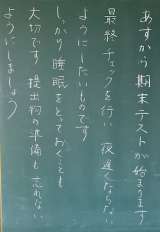 あすから期末テストが始まります
最終チェックを行い 夜遅くならない
ようにしたいものです
しっかり睡眠をとっておくことも
大切です 提出物の準備も忘れない
ようにしましょう